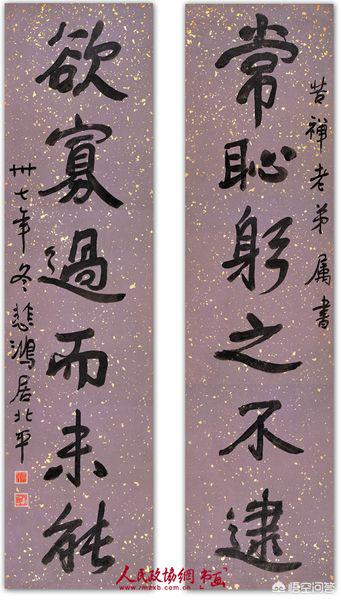 苦禪老弟属書
常恥躬之不逮
欲寡過而未能
卅七年冬悲鴻居北平
人民政協網书画
www.rmzxb.com.cn
悟空问答